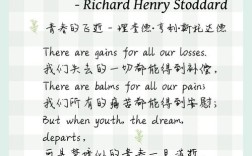 - Richard Henry Stoddard
青春的飞逝 - 理查德·亨利·斯托达德
There are gains for all our losses.
我们失去的一切都能得到补偿，
There are balms for all our pain:
我们所有的痛苦都能得到安慰；
But when youth, the dream,
departs,
可是梦境似的青春一旦消逝